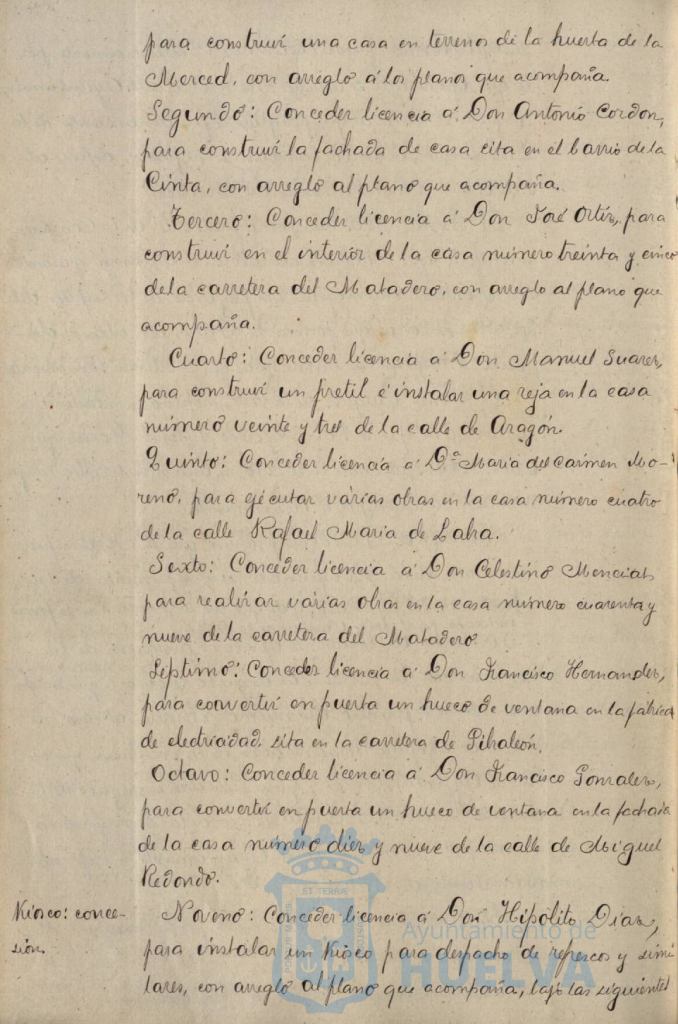 para construir una casa en terrenos de la huerta de la
Merced, con arreglo á los planos que acompaña.
Segundo: Conceder licencia á Don Antonio Cordon,
para construir la fachada de casa sita en el barrio de la
Cinta, con arreglo al plano que acompaña.
Tercero: Conceder licencia á Don José Ortiz, para
construir en el interior de la casa número treinta y cinco
de la carretera del Matadero, con arreglo al plano que
acompaña.
Cuarto: Conceder licencia á Don Manuel Suarez,
para construir un pretil é instalar una reja en la casa
número veinte y tres de la calle de Aragón.
Quinto: Conceder licencia á D.ª Maria del Carmen Mo-
reno, para ejecutar várias obras en la casa número cuatro
de la calle Rafael Maria de Labra.
Sexto: Conceder licencia á Don Celestino Menciats
para realizar várias obras en la casa número cuarenta y
nueve de la carretera del Matadero
Septimo: Conceder licencia á Don Francisco Hernandez,
para convertir en puerta un hueco de ventana en la fábrica
de electricidad, sita en la carretera de Gibraleón.
Octavo: Conceder licencia á Don Francisco Gonzalez,
para convertir en puerta un hueco de ventana en la fachada
de la casa número diez y nueve de la calle de Miguel
Redondo.
Kiosco: conce-
sión.
Noveno: Conceder licencia á Don Hipólito Diaz,
para instalar un Kiosco para despacho de refrescos y simi
lares, con arreglo al plano que acompaña, bajo las siguientes
Ayuntamiento de
HUELVA